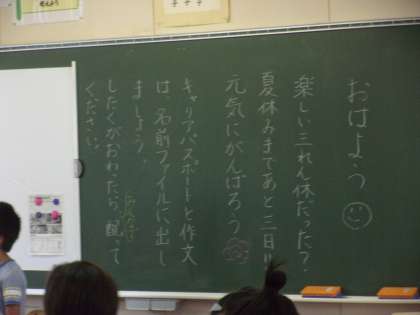 おはよう
楽しい三れん休だった？
夏休みまであと三日!!
元気にがんばろう
キャリアパスポートと作文
は、名前ファイルに出し
ましょう。
したくがおわったら、配って
ください。